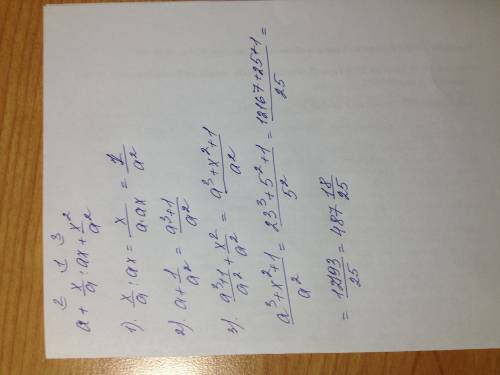 2 1 3
a + x/a : ax + x²/a²
1). x/a : ax = x/(a·ax) = 1/a²
2). a + 1/a² = (a³+1)/a²
3). (a³+1)/a² + x²/a² = (a³+x²+1)/a²
(a³+x²+1)/a² = (23³+5²+1)/5² = (12167+25+1)/25 =
= 12193/25 = 487 18/25